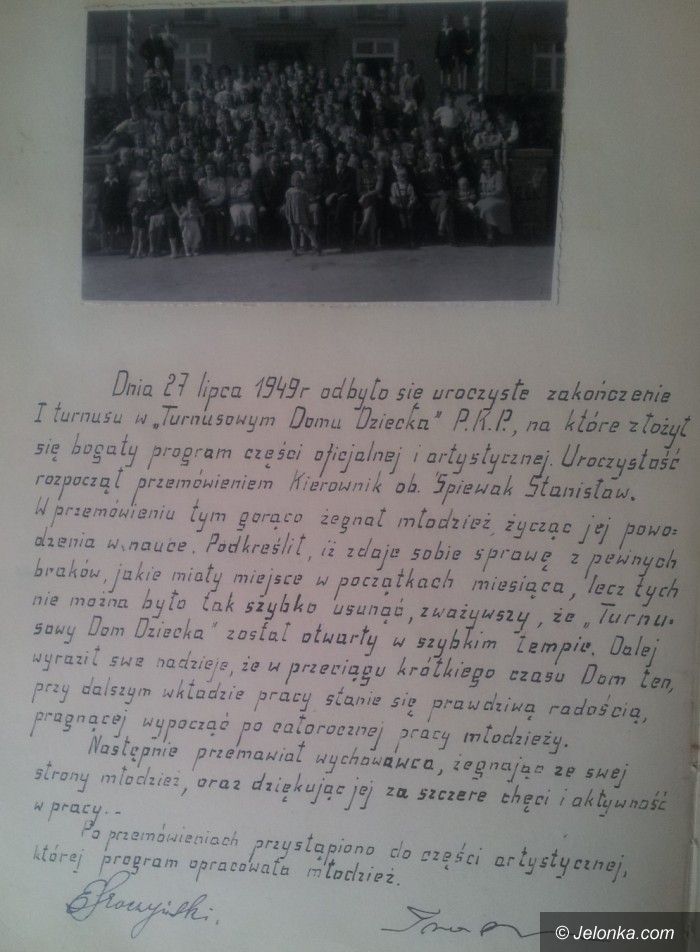 Dnia 27 lipca 1949 r odbyło się uroczyste zakończenie
I turnusu w „Turnusowym Domu Dziecka” P.K.P., na które złożył
się bogaty program części oficjalnej i artystycznej. Uroczystość
rozpoczął przemówieniem Kierownik ob. Śpiewak Stanisław.
W przemówieniu tym gorąco żegnał młodzież, życząc jej powo-
dzenia w nauce. Podkreślił, iż zdaje sobie sprawę z pewnych
braków, jakie miały miejsce w początkach miesiąca, lecz tych
nie można było tak szybko usunąć, zważywszy, że „Turnu-
sowy Dom Dziecka” został otwarty w szybkim tempie. Dalej
wyraził swe nadzieje, że w przeciągu krótkiego czasu Dom ten,
przy dalszym wkładzie pracy stanie się prawdziwą radością,
pragnącej wypocząć po całorocznej pracy młodzieży.
Następnie przemawiał wychowawca, żegnając ze swej
strony młodzież, oraz dziękując jej za szczere chęci i aktywność
w pracy.-
Po przemówieniach przystąpiono do części artystycznej,
której program opracowała młodzież.
© Jelonka.com